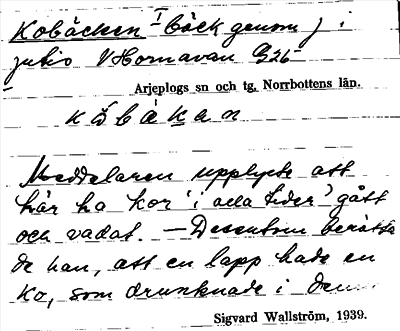 Kobäcken bäck genom ) i
V Hornavan G26
Arjeplogs sn och tg, Norrbottens län.
Meddelaren upplyste att
här ha kor 'i alla tider' gått
och vadat. — Dessutom berätta
de han, att en lapp hade en
ko, som drunknade i den
Sigvard Wallström, 1939.